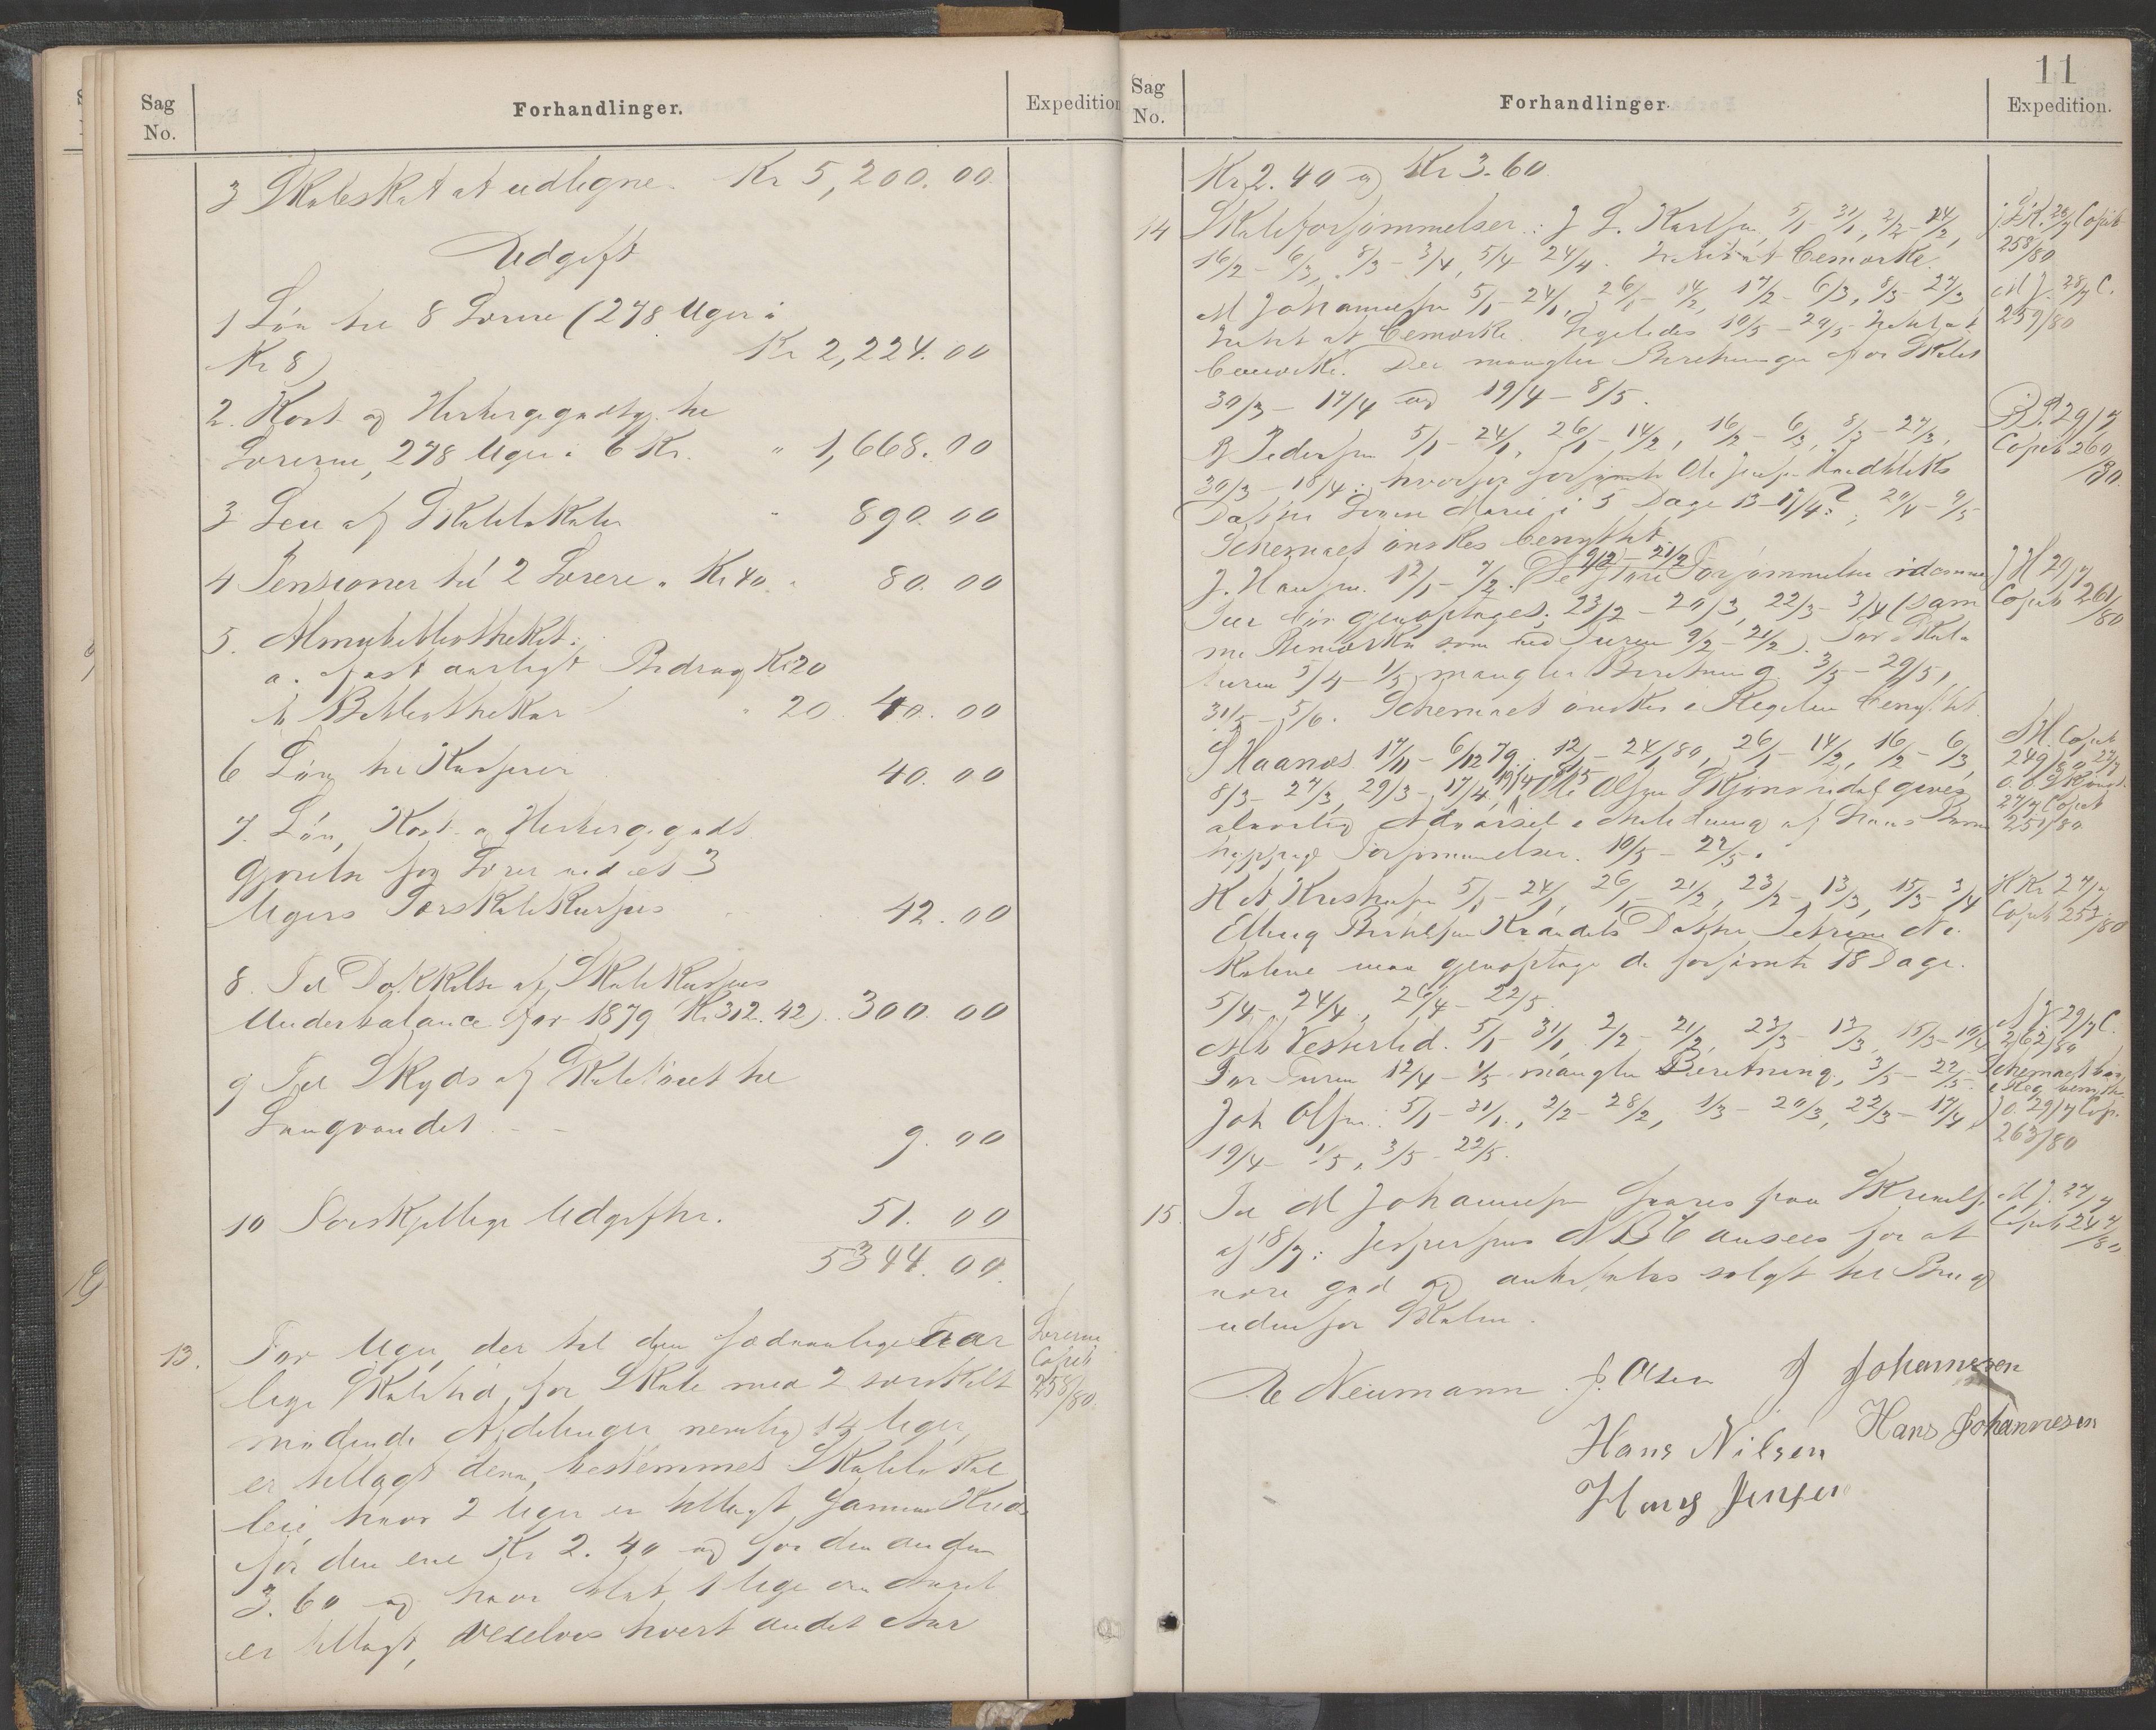 Sag
No.
Forhandlinger.
Expedition
3 Skoleskat at udligne. Kr 5,200.00
Udgift
1 Løn til 8 Lærere (278 Uger à
Kr 8) Kr 2,224.00
2. Kost og Herberge godtgj. til
Lærerne, 278 Uger à 6 Kr. " 1,668.00
3 Leie af Skolelokaler " 890.00
4 Pensioner til 2 Lærere à Kr 40. 80.00
5. Almuebibliotheket:
a. fast aarligt Bidrag Kr 20
b Bibliothekar " 20 40.00
6 Løn til Kasserer 40.00
7. Løn, Kost og Herberge godt
gjørelse for Lærer ved et 3
Ugers Lærerkursus 42.00
8. Til Dækkelse af Skolekassens
Underbalance for 1879 (Kr 312.42). 300.00
9 Til Skyds af Skoletøiet til
Langvandet - - 9.00
10 Forskjellige Udgifter. 51.00
5344.00.
13. For Uger, der til den sædvanlige aar
lige Skoletid for Skole med 2 særskilt
mødende Afdelinger nemlig 14 Uger,
er tillagt denne, bestemmes Skolelokal
leie, hvor 2 Uger er tillagt samme Kreds
for den ene Kr 2.40 og for den anden
3.60 og hvor blot 1 Uge om Aaret
er tillagt, vexelvis hvert andet Aar
Lærerne
Copieb
258/80.
Sag
No.
Forhandlinger.
11
Expedition.
Kr 2.40 og Kr 3.60
14 Skoleforsømmelser: J L. Karlsen 5/1 - 31/1, 2/2 - 14/2,
16/2 - 6/3, 8/3 - 3/4, 5/4 24/4. Intet at bemærke.
M Johannessen 5/1 - 24/1, 26/1 - 14/2, 17/2 - 6/3, 8/3 - 27/3
Intet at bemærke. Ligeledes 10/5 - 29/5 Intet at
bemærke. Der mangler Beretninger for Skolen
30/3 - 17/4 og 19/4 - 8/5.
B Pedersen 5/1 - 24/1, 26/1 - 14/2, 16/2 - 6/3, 8/3 - 27/3,
30/3 - 18/4: hvorfor forsømte Ole Jensen
Datter Marie i 5 Dage 13-17/4?, 20/4 - 9/5
Schemaet ønskes benyttet.
J. Hansen. 12/1 - 7/2. 9/2 - 21/2 De Forsømmelser i denne
Tur bør gjenoptages; 23/2 - 20/3, 22/3 - 3/4 (sam
me Bemærkn som ved Turen 9/2 - 21/2). For Skole
turen 5/4 - 1/5 mangler Beretning. 3/5 - 29/5,
31/5 - 5/6. Schemaet ønskes i Regelen benyttet.
S Haanæs 17/11 - 6/12 79. 12/1 - 24/1 80, 26/1 - 14/2, 16/2 - 6/3
8/3 - 27/3, 29/3 - 17/4, Ole Olsen gives
alvorlig Advarsel i Anledning af hans Børns
hyppige Forsømmelser. 10/5 - 22/5.
H A Kristiansen 5/1 - 24/1, 26/1 - 21/2, 23/2 - 13/3, 15/3 3/4
Elling Datter Petrine Ni
koline maa gjenoptage de forsømte 18 Dage.
5/4 - 24/4, 26/4 - 22/5.
Alb Vesterlid. 5/1 31/1, 2/2 - 21/2, 23/3 - 13/3, 15/3 - 10/4
For Turen 12/4 - 1/5 mangler Beretning, 3/5 - 22/5.
Joh Olsen: 5/1 - 31/1, 2/2 - 28/2, 1/3 - 20/3, 22/3 - 17/4,
19/4 - 1/5, 3/5 - 22/5.
15. Til M Johannessen svares paa Skrivelse
af 18/7: Jespersens ABC ansees for at
være god og anbefales solgt til Brug
udenfor Skolen.
Neumann J. Olsen J Johannesen
Hans Nilsen Hans Johannesen
Hans Jensen
J.L.K. 28/7 Copieb
258/80
M J. 28/7 C.
259/80
B P. 29/7
Copieb 260
/80
J H 29/7
Copieb 261
/80
S H. Copieb
249/80 27/7
27/7 Copieb
251/80
H Kr 27/7
Copieb 253
/80
A V 29/7 C.
262/80
Schemaet bør
i Reg. benyttes
J O. 29/7 Cop.
263/80
M J. 27/7
Copieb 247
/80